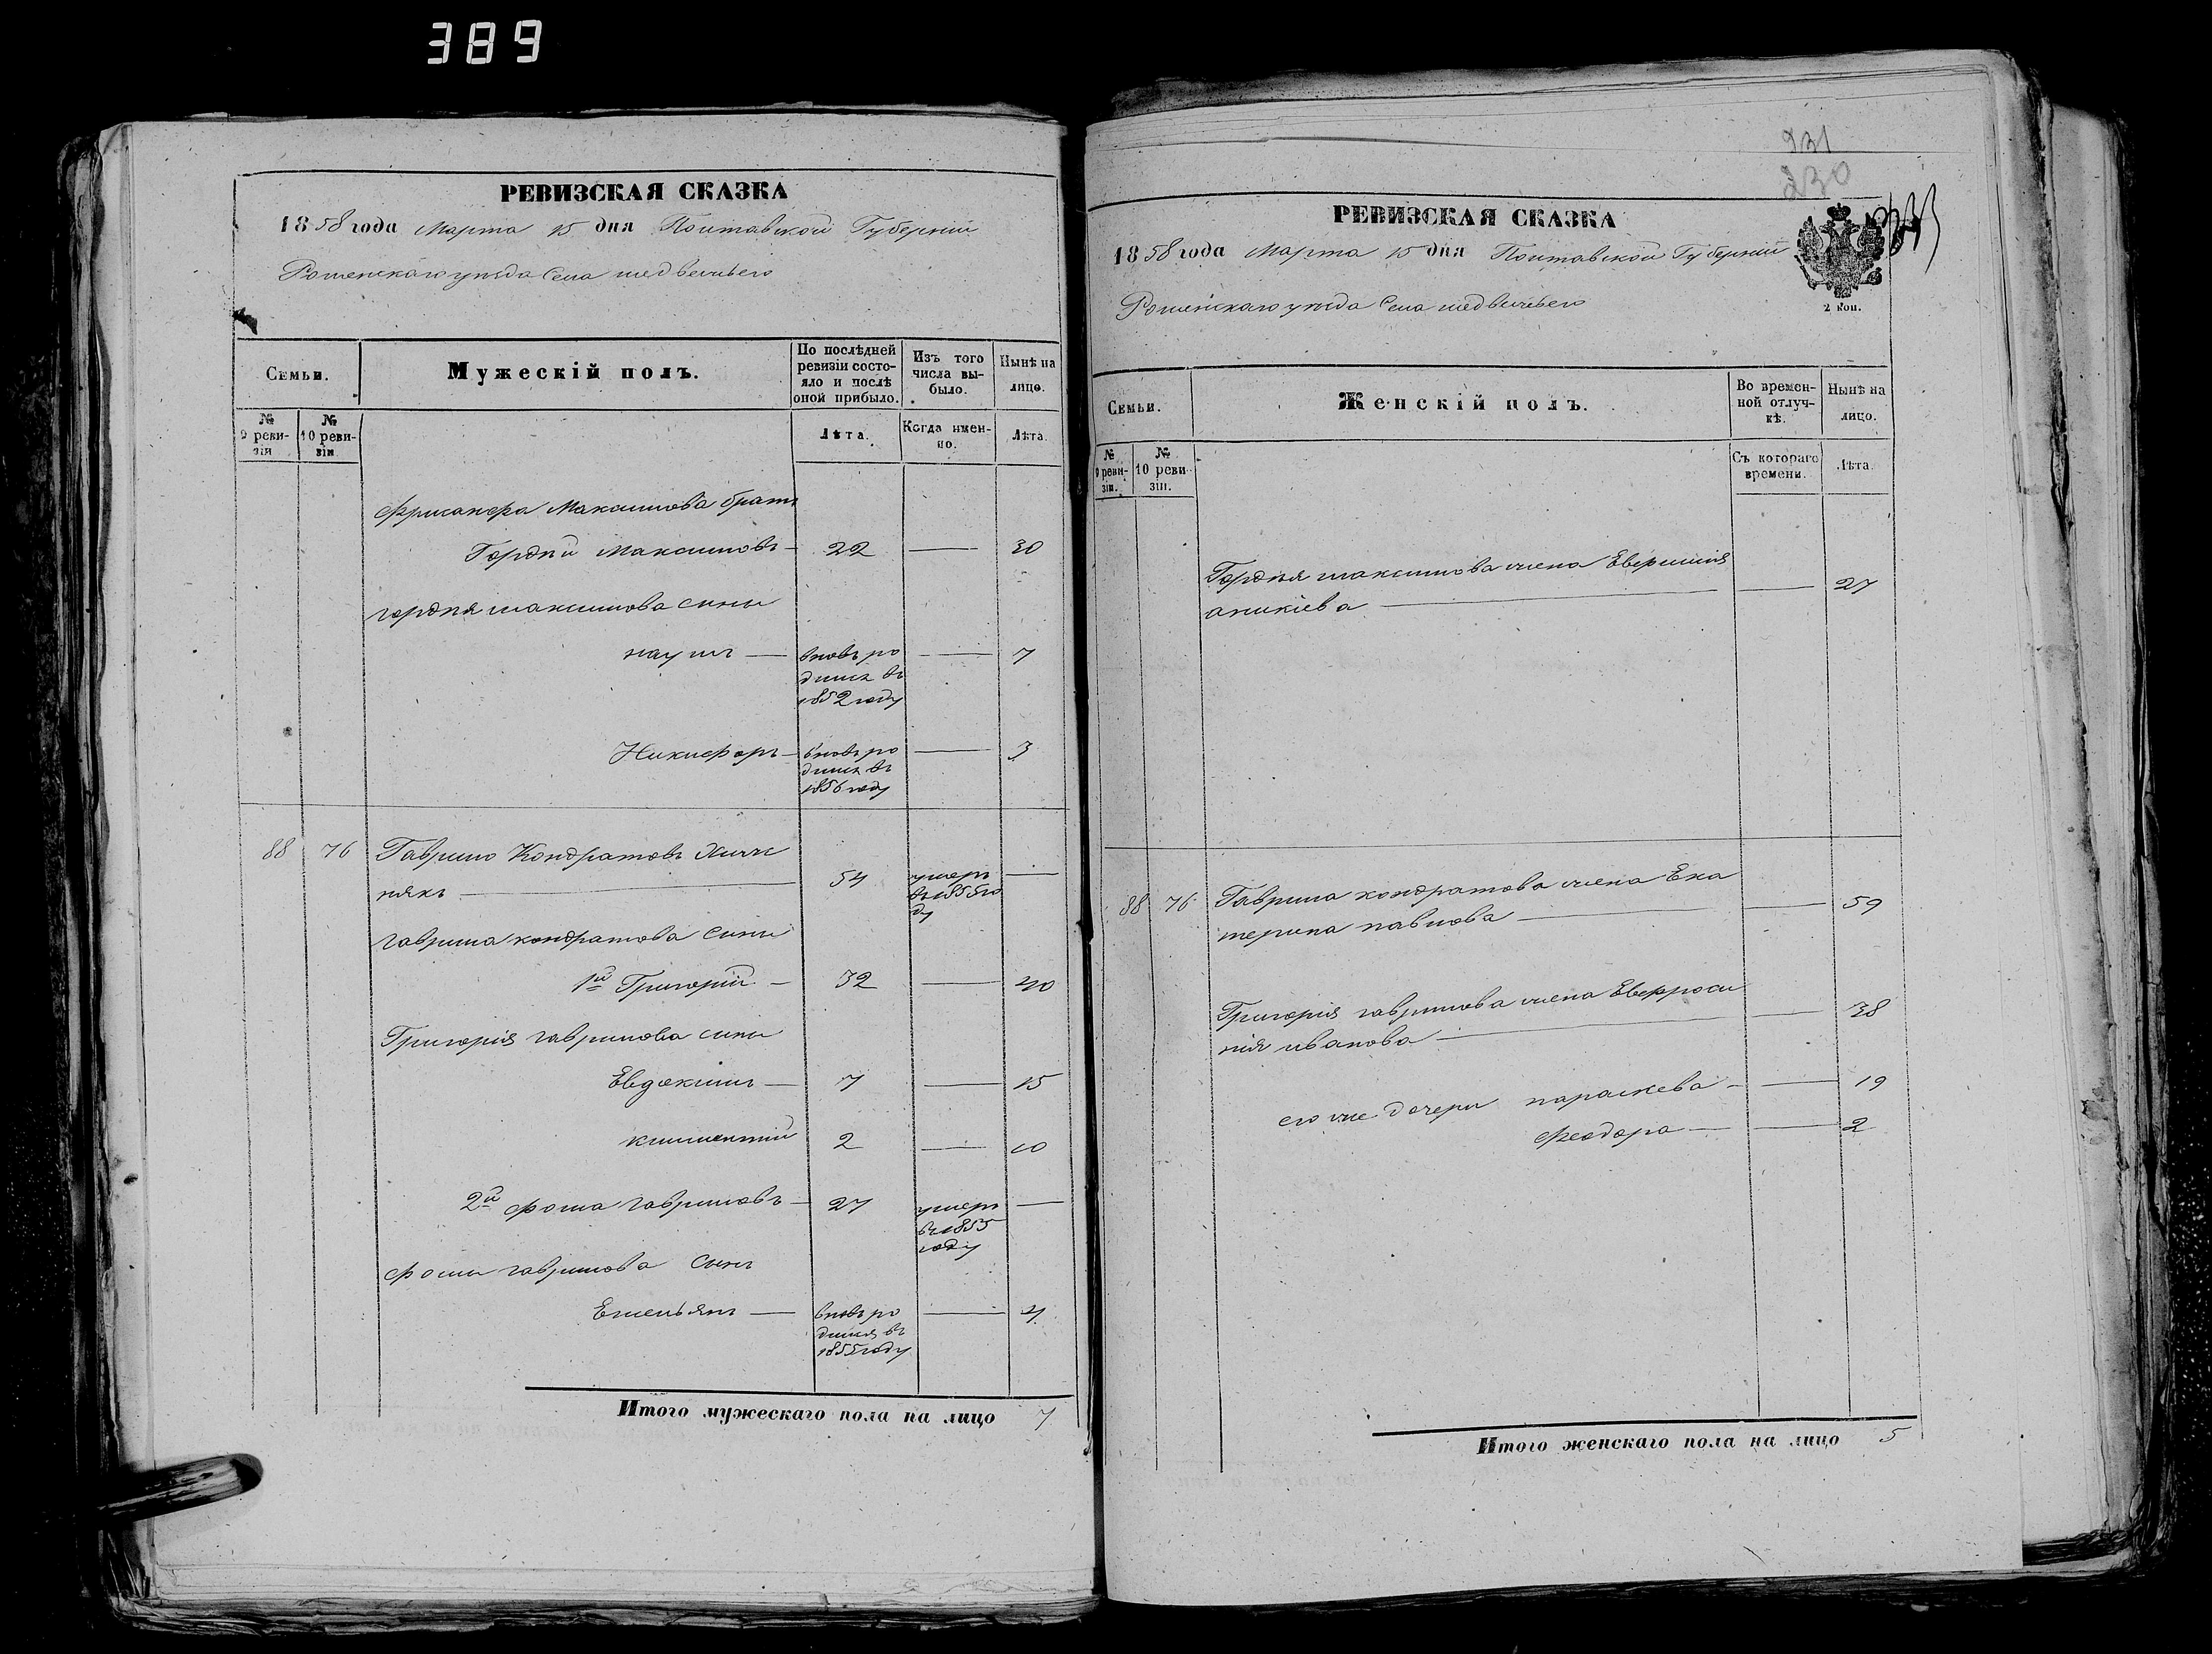 389
РЕВИЗСКАЯ СКАЗКА
1858 года Марта 15 дня Полтавской Губерніи
Роменскаго уѣзда Села медвежьего
Семьи.
Мужескій полъ.
По послѣдней ревизіи состояло и послѣ оной прибыло.
Изъ того числа выбыло.
Нынѣ на лицо.
№ 9 ревизіи
№ 10 ревизіи
Лѣта.
Когда именно.
Лѣта.
Максимова братъ
Гордѣй Максимовъ — 22 — 30
гордѣя максимова сыны
наумъ — вновь ро — 7
дился въ
1852 году
Никифоръ — вновь ро — 3
дился въ
1856 году
88 76 Гаврило Кондратовъ
някъ — 54 умеръ —
въ 1855 го
ду
гаврила кондратова сыны
1й Григорій — 32 — 40
Григорія гаврилова сыны
Евдокимъ — 7 — 15
климентій 2 — 10
2й фома гавриловъ — 27 умеръ —
въ 1855
году
фомы гаврилова сынъ
Емельянъ — вновь ро — 4
дился въ
1855 году
Итого мужескаго пола на лицо 7
231
230
РЕВИЗСКАЯ СКАЗКА
1858 года Марта 15 дня Полтавской Губерніи
Роменскаго уѣзда Села медвежьего
2 коп.
Семьи.
Женскій полъ.
Во временной отлучкѣ.
Нынѣ на лицо.
№ 9 ревизіи.
№ 10 ревизіи.
Съ котораго времени.
Лѣта.
Гордѣя максимова жена
аникіева — — 27
88 76 Гаврила кондратова жена Ека
терина павлова — — 59
Григорія гаврилова жена Евфроси
нія иванова — — 38
его же дочери параскева — — 19
феодора — — 2
Итого женскаго пола на лицо 5